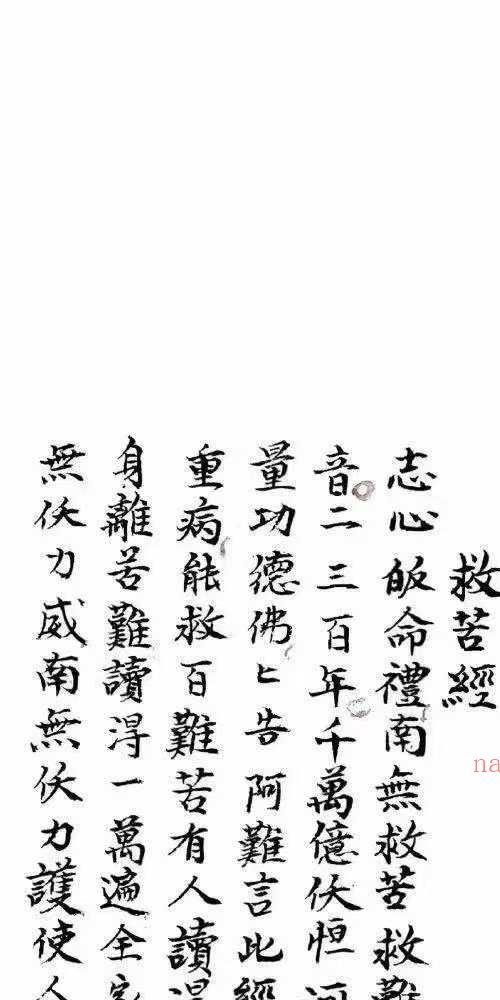 救苦經
志心皈命禮南無救苦救難
音二三百年千萬億仸恒河
量功德佛匕告阿難言此經
重病能救百難苦有人讀淂
身離苦難讀淂一萬遍全家
無仸力威南無仸力護使人
na